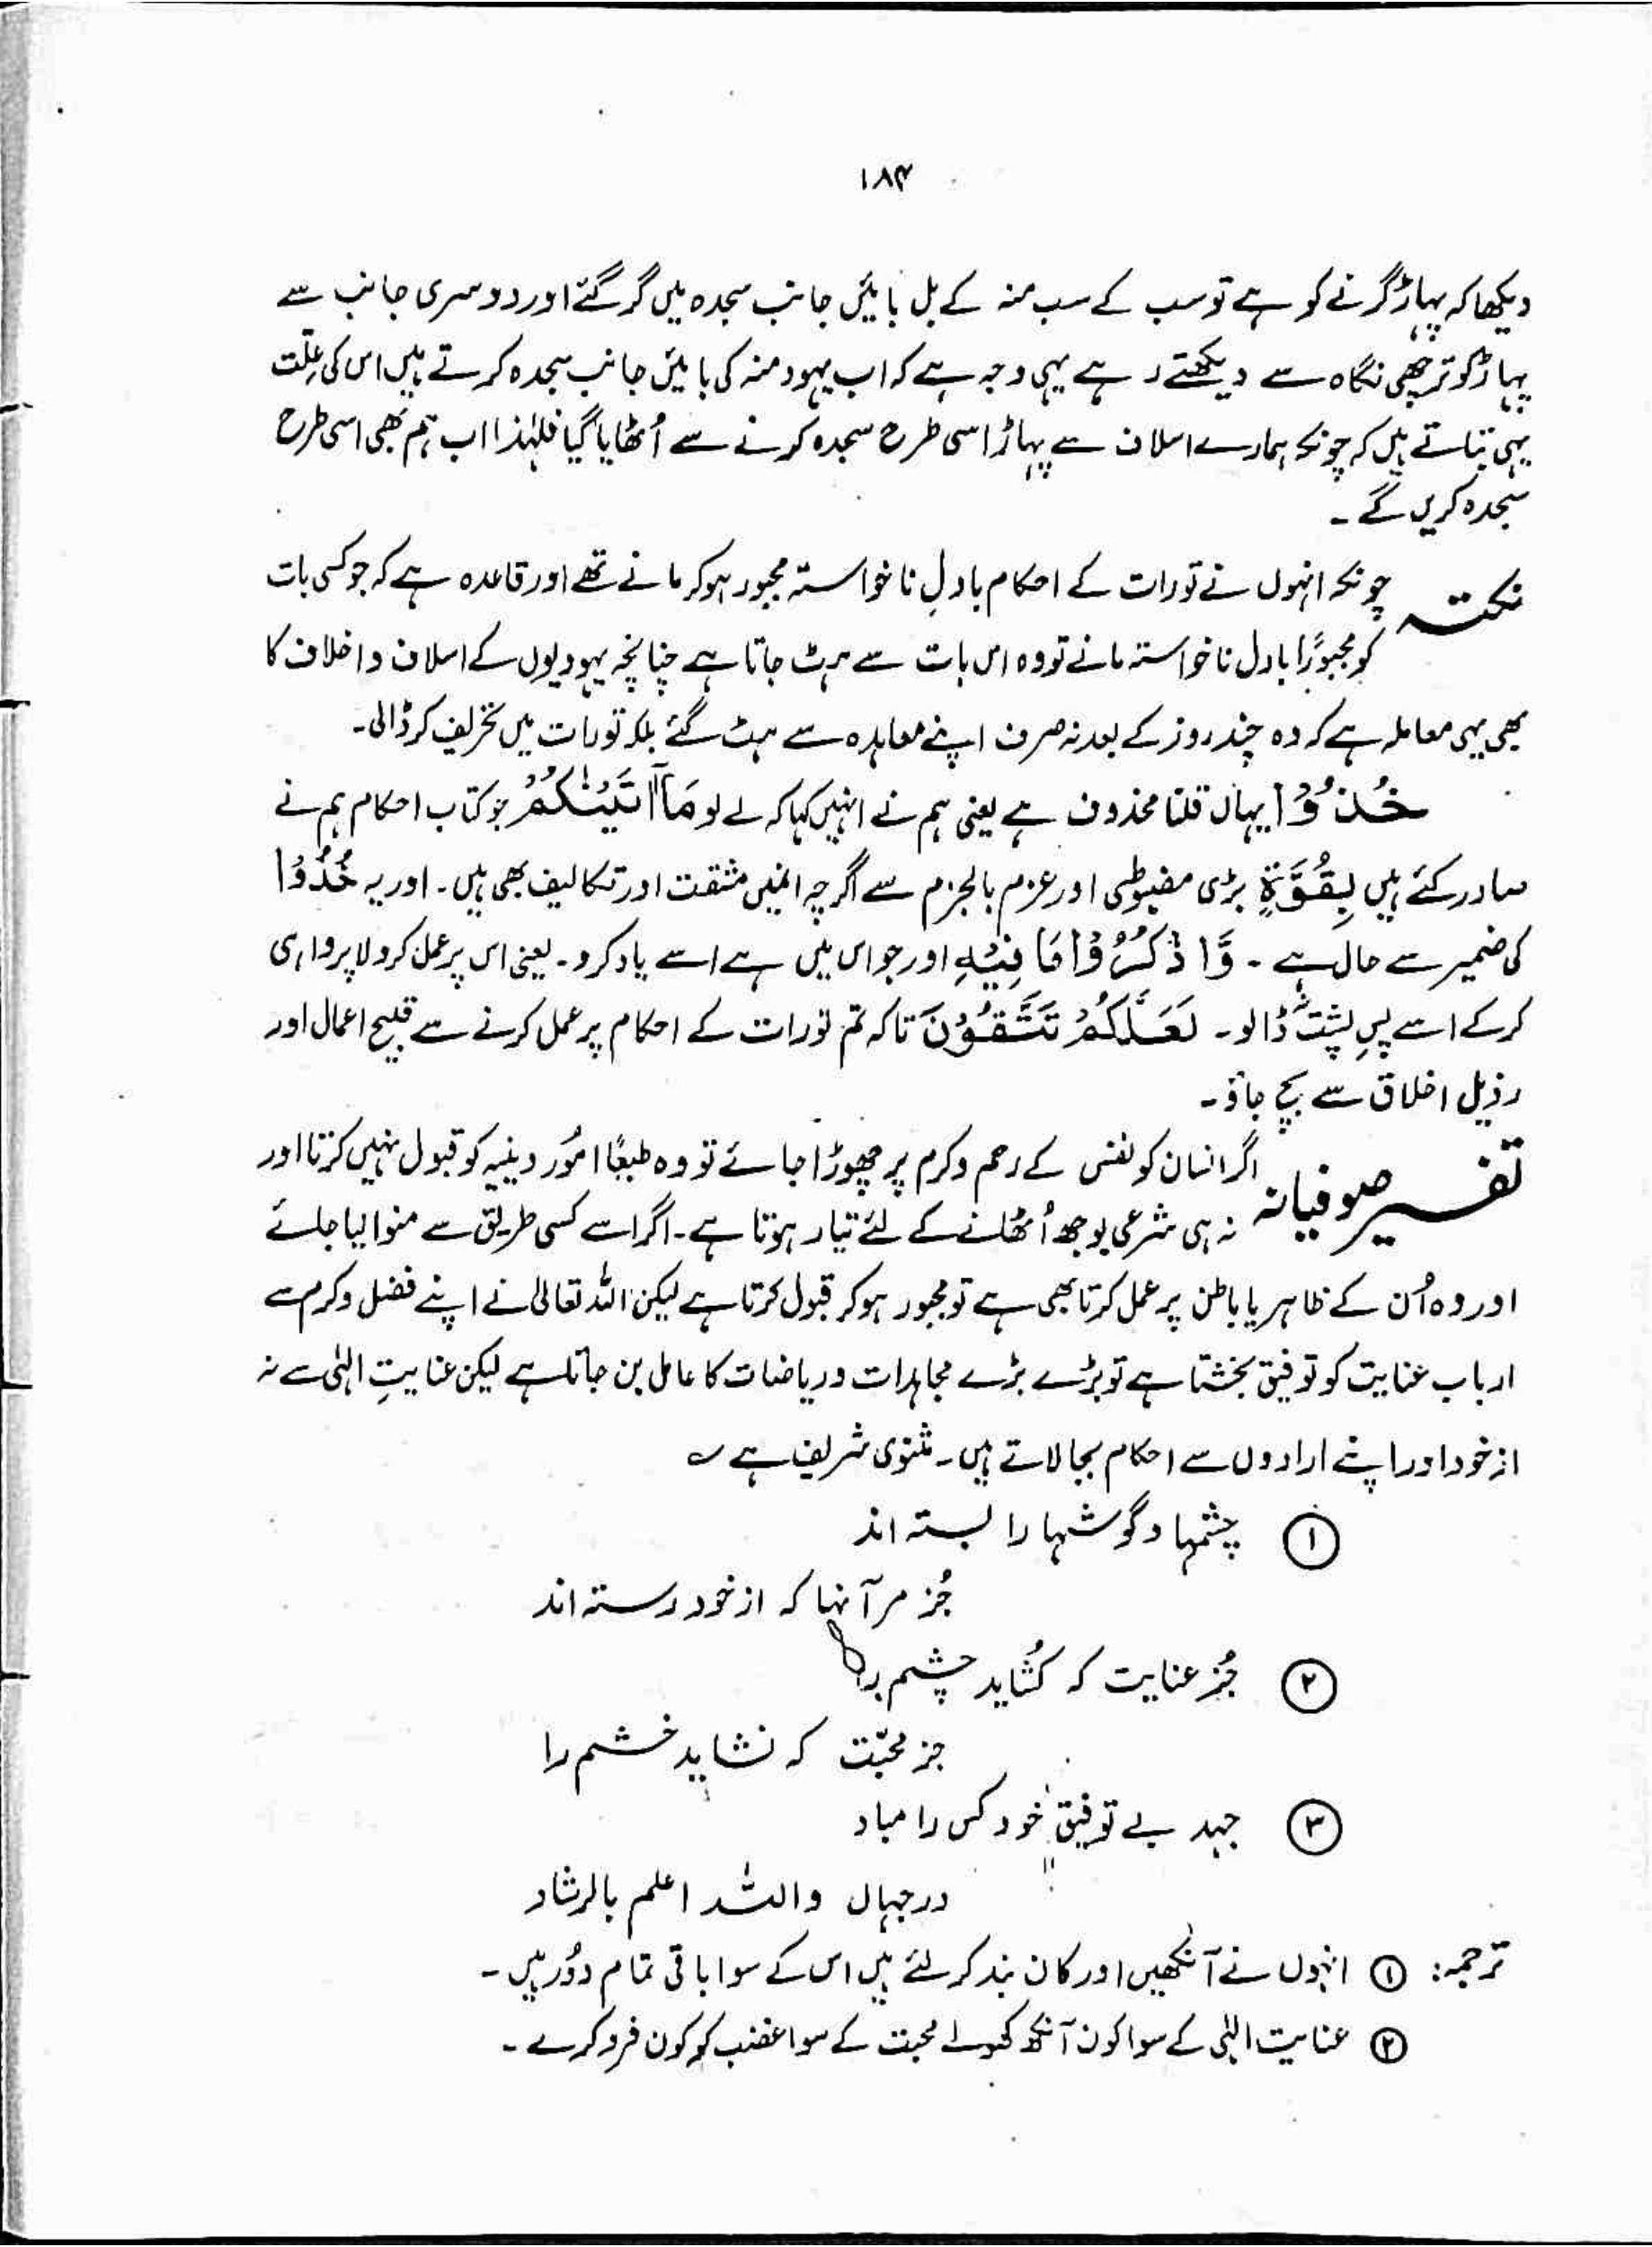 ۱۸۴
دیکھا کہ پہاڑ گرنے کو ہے تو سب کے سب منہ کے بل بائیں جانب سجدہ میں گر گئے اور دوسری جانب سے
پہاڑ کو ترچھی نگاہ سے دیکھتے رہے یہی وجہ ہے کہ اب یہود منہ کی بائیں جانب سجدہ کرتے ہیں اس کی علّت
یہی بتاتے ہیں کہ چونکہ ہمارے اسلاف سے پہاڑ اسی طرح سجدہ کرنے سے اُٹھایا گیا فلہٰذا اب ہم بھی اسی طرح
سجدہ کریں گے ۔
نکتہ چونکہ انہوں نے تورات کے احکام بادلِ ناخواستہ مجبور ہو کر مانے تھے اور قاعدہ ہے کہ جو کسی بات
کو مجبورًا بادل ناخواستہ مانے تو وہ اس بات سے ہٹ جاتا ہے چنانچہ یہودیوں کے اسلاف و اخلاف کا
بھی یہی معاملہ ہے کہ وہ چند روز کے بعد نہ صرف اپنے معاہدہ سے ہٹ گئے بلکہ تورات میں تحریف کر ڈالی۔
خُذُوْا یہاں قلنا محذوف ہے یعنی ہم نے انہیں کہا کہ لے لو مَآ اٰتَیْنٰکُمْ جو کتاب احکام ہم نے
صادر کئے ہیں بِقُوَّۃٍ بڑی مضبوطی اور عزم بالجزم سے اگرچہ انمیں مشقت اور تکالیف بھی ہیں۔ اور یہ خُذُوْا
کی ضمیر سے حال ہے ۔ وَّاذْکُرُوْا مَا فِیْہِ اور جو اس میں ہے اسے یاد کرو۔ یعنی اس پر عمل کرو لاپرواہی
کر کے اسے پسِ پشت ڈالو ۔ لَعَلَّکُمْ تَتَّقُوْنَ تاکہ تم تورات کے احکام پر عمل کرنے سے قبیح اعمال اور
رذیل اخلاق سے بچ جاؤ۔
تفسیر صوفیانہ اگر انسان کو نفس کے رحم و کرم پر چھوڑا جائے تو وہ طبعًا امُور دینیہ کو قبول نہیں کرتا اور
نہ ہی شرعی بوجھ اُٹھانے کے لئے تیار ہوتا ہے۔ اگر اسے کسی طریق سے منوا لیا جائے
اور وہ اُن کے ظاہر یا باطن پر عمل کرتا بھی ہے تو مجبور ہو کر قبول کرتا ہے لیکن اللہ تعالیٰ نے اپنے فضل و کرم سے
ارباب عنایت کو توفیق بخشتا ہے تو بڑے بڑے مجاہدات و ریاضات کا عامل بن جاتا ہے لیکن عنایتِ الہٰی سے نہ
از خود اور اپنے ارادوں سے احکام بجا لاتے ہیں ۔ مثنوی شریف ہے ؎
① چشمہا و گوشہا را بستہ اند
جُز مر آنہا کہ از خود رستہ اند
② جُز عنایت کہ کُشاید چشم را
جز محبّت کہ نشاید خشم را
③ جہد بے توفیق خود کس را مباد
در جہاں واللہ اعلم بالرشاد
ترجمہ: ① انہوں نے آنکھیں اور کان بند کر لئے ہیں اس کے سوا باقی تمام دوُر ہیں ۔
② عنایت الہٰی کے سوا کون آنکھ کھولے محبت کے سوا غضب کو کون فرو کرے ۔